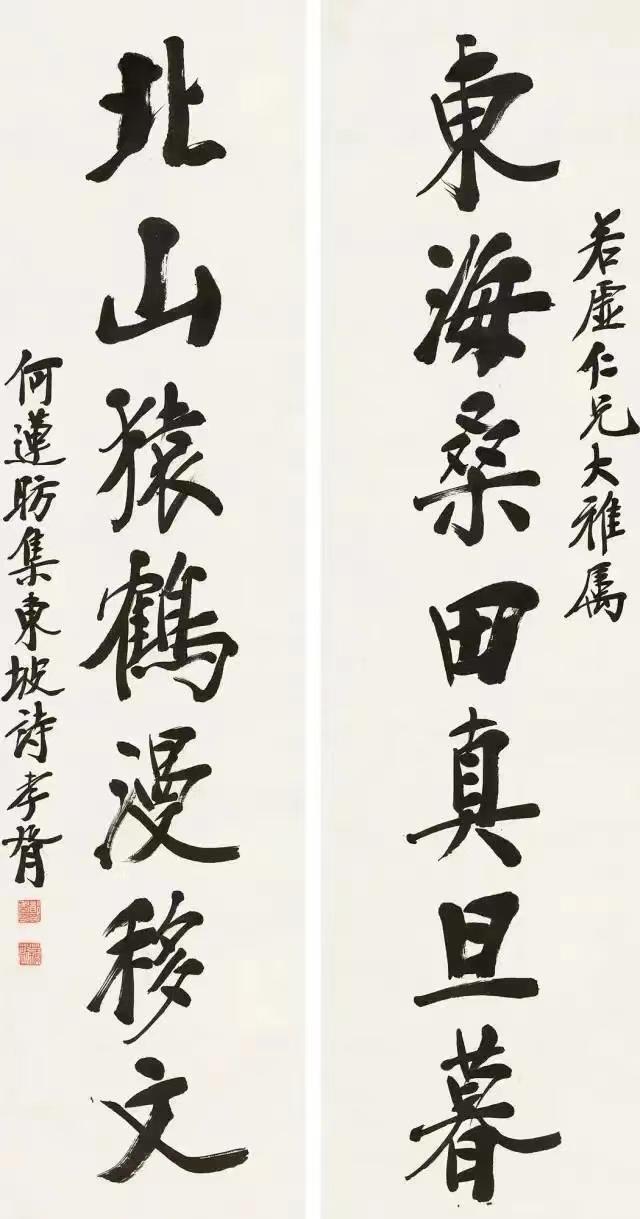 若虚仁兄大雅属
東海桑田真旦暮
北山猿鶴漫移文
何蓮昉集東坡詩孝胥